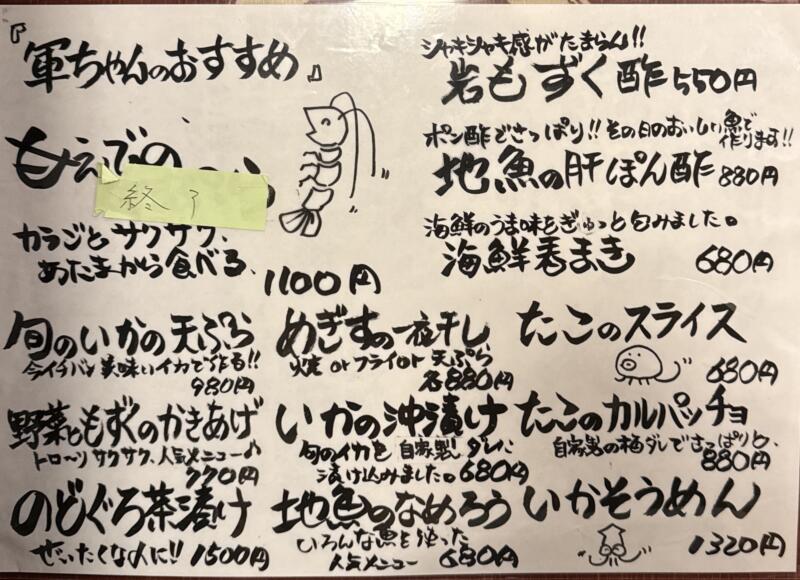 『軍ちゃんのおすすめ』
もえびの
終了
カラごとサクサク、
あたまから食べる、
1100円
シャキシャキ感がたまらん!!
岩もずく酢 550円
ポン酢でさっぱり!! その日のおいしい魚で
作ります!!
地魚の肝ぽん酢 880円
海鮮のうま味をぎゅっと包みました。
海鮮春まき 680円
旬のいかの天ぷら
今イチバン美味いイカで作る!!
980円
めぎすの一夜干し
焼 or フライ or 天ぷら
各880円
たこのスライス
680円
野菜ともずくのかきあげ
トロ〜リサクサク、人気メニュー♪
770円
いかの沖漬け
旬のイカを自家製ダレに
漬け込みました。680円
たこのカルパッチョ
自家製の梅ダレでさっぱりと、
880円
のどぐろ茶漬け
ぜいたくな〆に!! 1500円
地魚のなめろう
いろんな魚を使った
人気メニュー 680円
いかそうめん
1320円